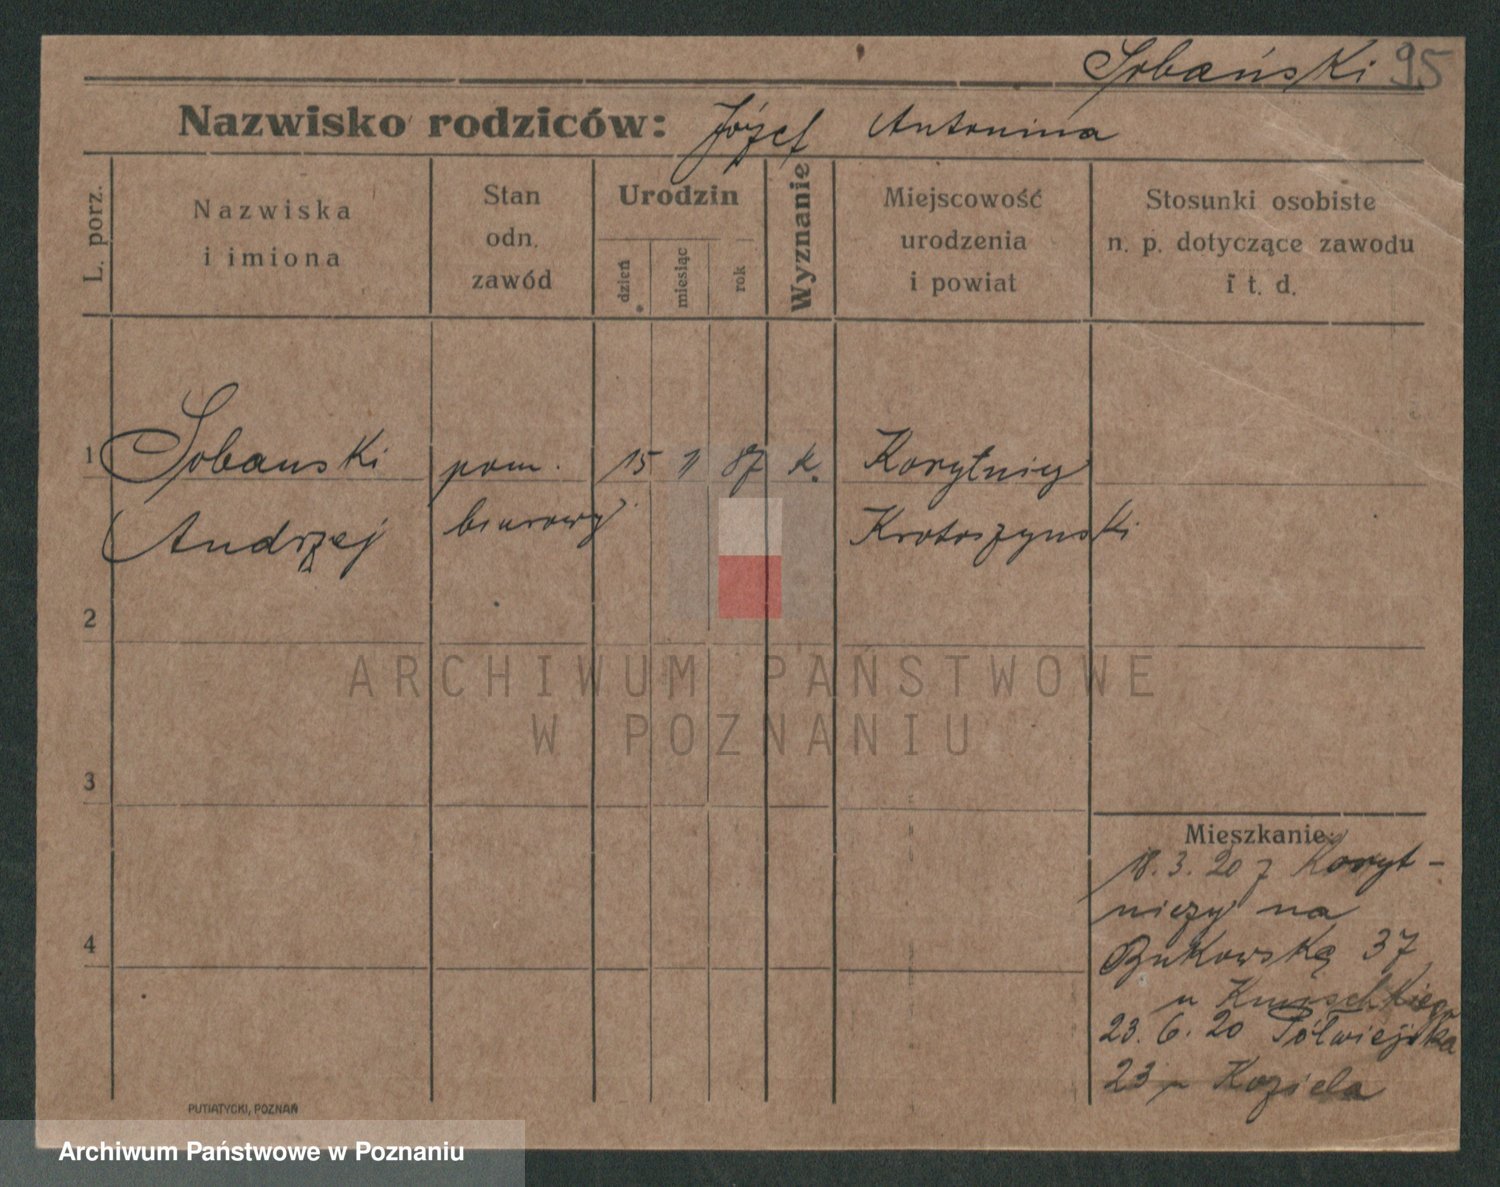 Sobański 95
Nazwisko rodziców: Józef Antonina
L. porz.
Nazwiska
i imiona
Stan
odn.
zawód
Urodzin
dzień
miesiąc
rok
Wyznanie
Miejscowość
urodzenia
i powiat
Stosunki osobiste
n. p. dotyczące zawodu
i t. d.
1 Sobanski pom. 15 11 87 k. Korytnicy
Andrzej biurowy Krotoszynski
2
3
4
ARCHIWUM PAŃSTWOWE
W POZNANIU
Mieszkanie:
18.3.20 z Koryt-
niczy na
Bukowską 37
u
23.6.20 Półwiejska
23 u Koziela
PUTIATYCKI, POZNAŃ
Archiwum Państwowe w Poznaniu